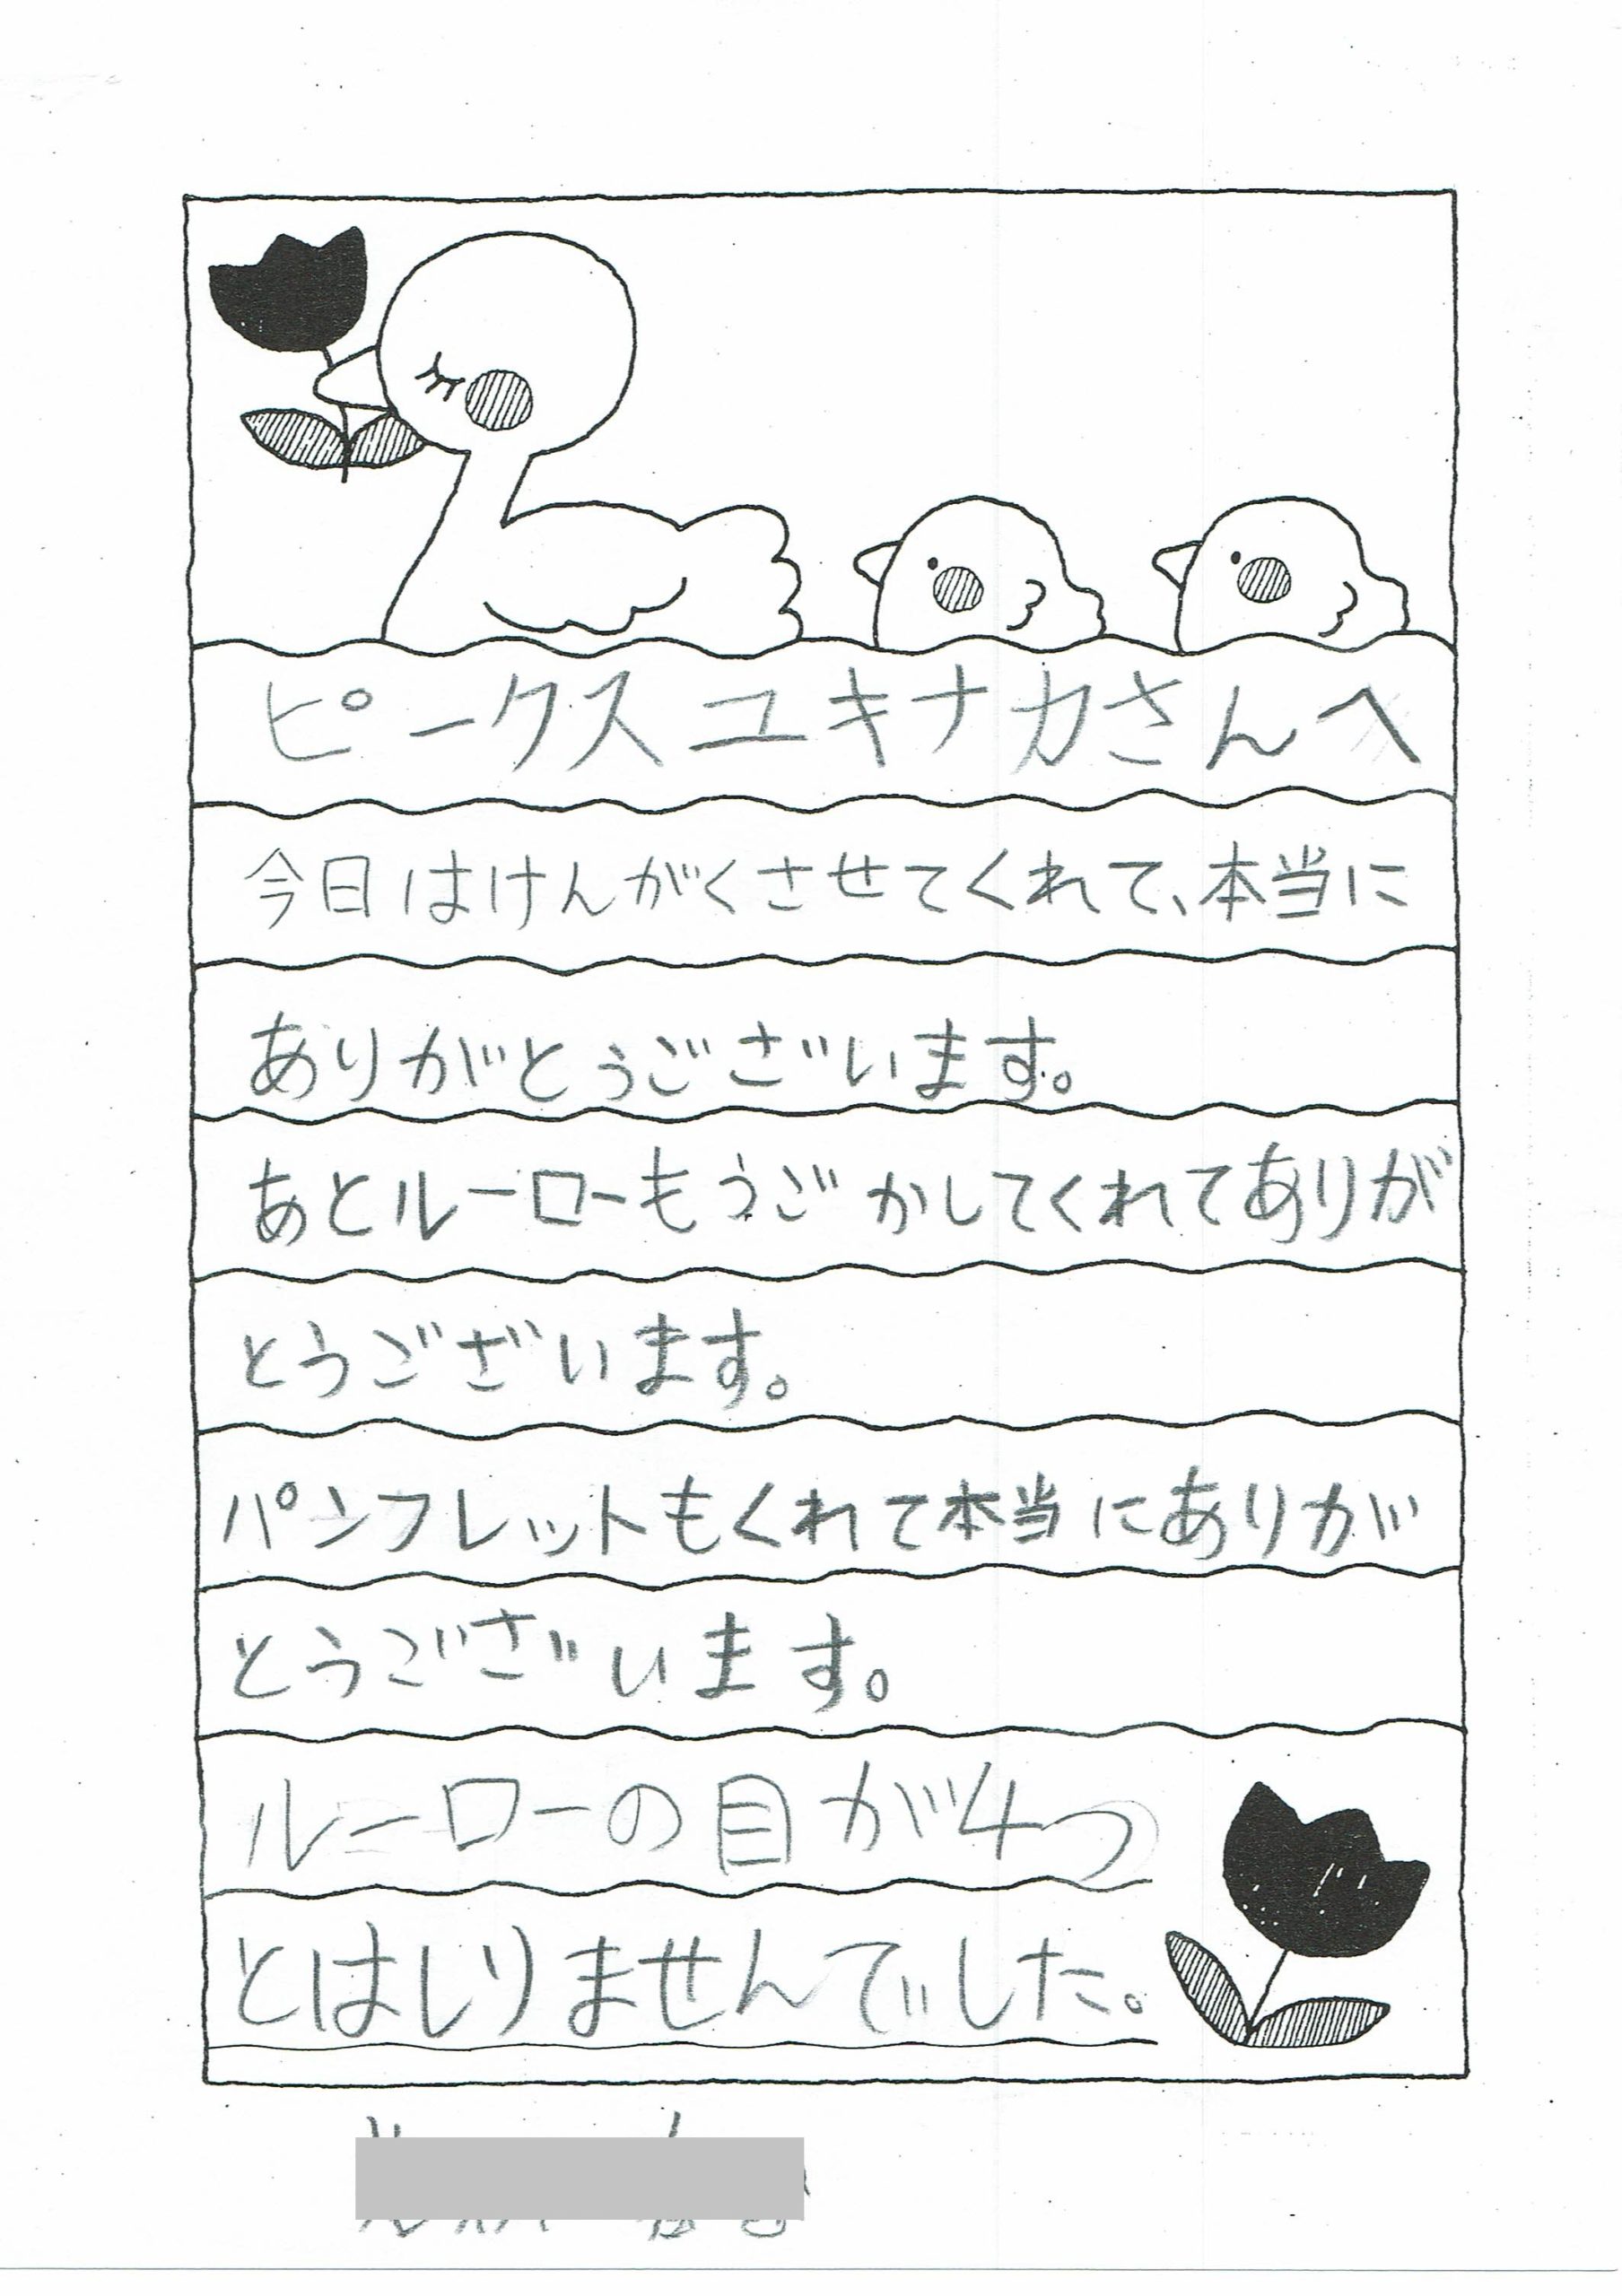 ピークスユキナカさんへ
今日はけんがくさせてくれて、本当に
ありがとうございます。
あとルーローもうごかしてくれてありが
とうございます。
パンフレットもくれて本当にありが
とうございます。
ルーローの目が4つ
とはしりませんでした。